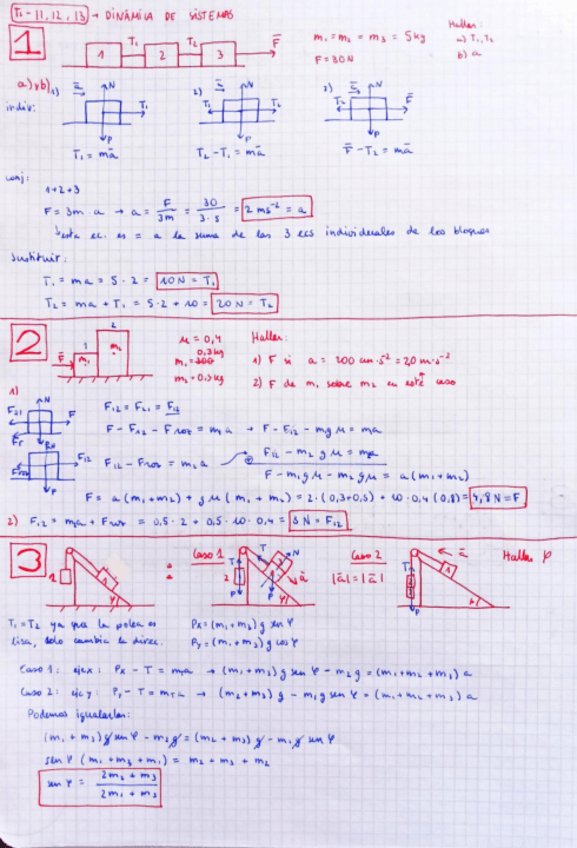 T1-11, 12, 13 → DINÁMICA DE SISTEMAS
1
1 T₁ 2 T₂ 3 F⃗
m₁ = m₂ = m₃ = 5 kg
F = 30 N
Hallar:
a) T₁, T₂
b) a
a) y b)
indiv:
1) a⃗ N T₁ P
2) a⃗ N T₁ T₂ P
3) a⃗ N T₂ F⃗ P
T₁ = ma⃗
T₂ - T₁ = ma⃗
F⃗ - T₂ = ma⃗
conj:
1+2+3
F = 3m · a → a = F/3m = 30/3·5 = 2 ms⁻² = a
esta ec. es = a la suma de las 3 ecs individuales de los bloques
Sustituir:
T₁ = ma = 5 · 2 = 10 N = T₁
T₂ = ma + T₁ = 5·2 + 10 = 20 N = T₂
2
F⃗ 1 m₁ 2 m₂
μ = 0,4
m₁ = 0,3 kg
m₂ = 0,5 kg
Hallar:
1) F si a = 200 cm·s⁻² = 2,0 m·s⁻²
2) F de m₁ sobre m₂ en este caso
1)
F₂₁ N F Fr P
F₁₂ = F₂₁ = F₁₂
F - F₁₂ - Froz = m₁a → F - F₁₂ - m₁gμ = m₁a
N F₁₂ Froz P
F₁₂ - Froz = m₂a
F₁₂ - m₂gμ = m₂a
F - m₁gμ - m₂gμ = a(m₁+m₂)
F = a(m₁+m₂) + gμ(m₁+m₂) = 2·(0,3+0,5) + 10·0,4(0,8) = 4,8 N = F
2) F₁₂ = m₂a + Froz = 0,5·2 + 0,5·10·0,4 = 3 N = F₁₂
3
2 1 φ
Caso 1
T 2 P T N a⃗ P φ
Caso 2
|a⃗| = |a⃗|
a⃗ T 1 P
Hallar φ
T₁ = T₂ ya que la polea es
lisa, solo cambia la direc.
Px = (m₁+m₃) g sen φ
Py = (m₁+m₃) g cos φ
Caso 1: eje x: Px - T = mᴛa → (m₁+m₃) g sen φ - m₂g = (m₁+m₂+m₃) a
Caso 2: eje y: Pᵧ - T = mᴛa → (m₂+m₃) g - m₁g sen φ = (m₁+m₂+m₃) a
Podemos igualarlas:
(m₁+m₃) g sen φ - m₂g = (m₂+m₃) g - m₁g sen φ
sen φ (m₁+m₃+m₁) = m₂+m₃+m₂
sen φ = 2m₂+m₃ / 2m₁+m₃